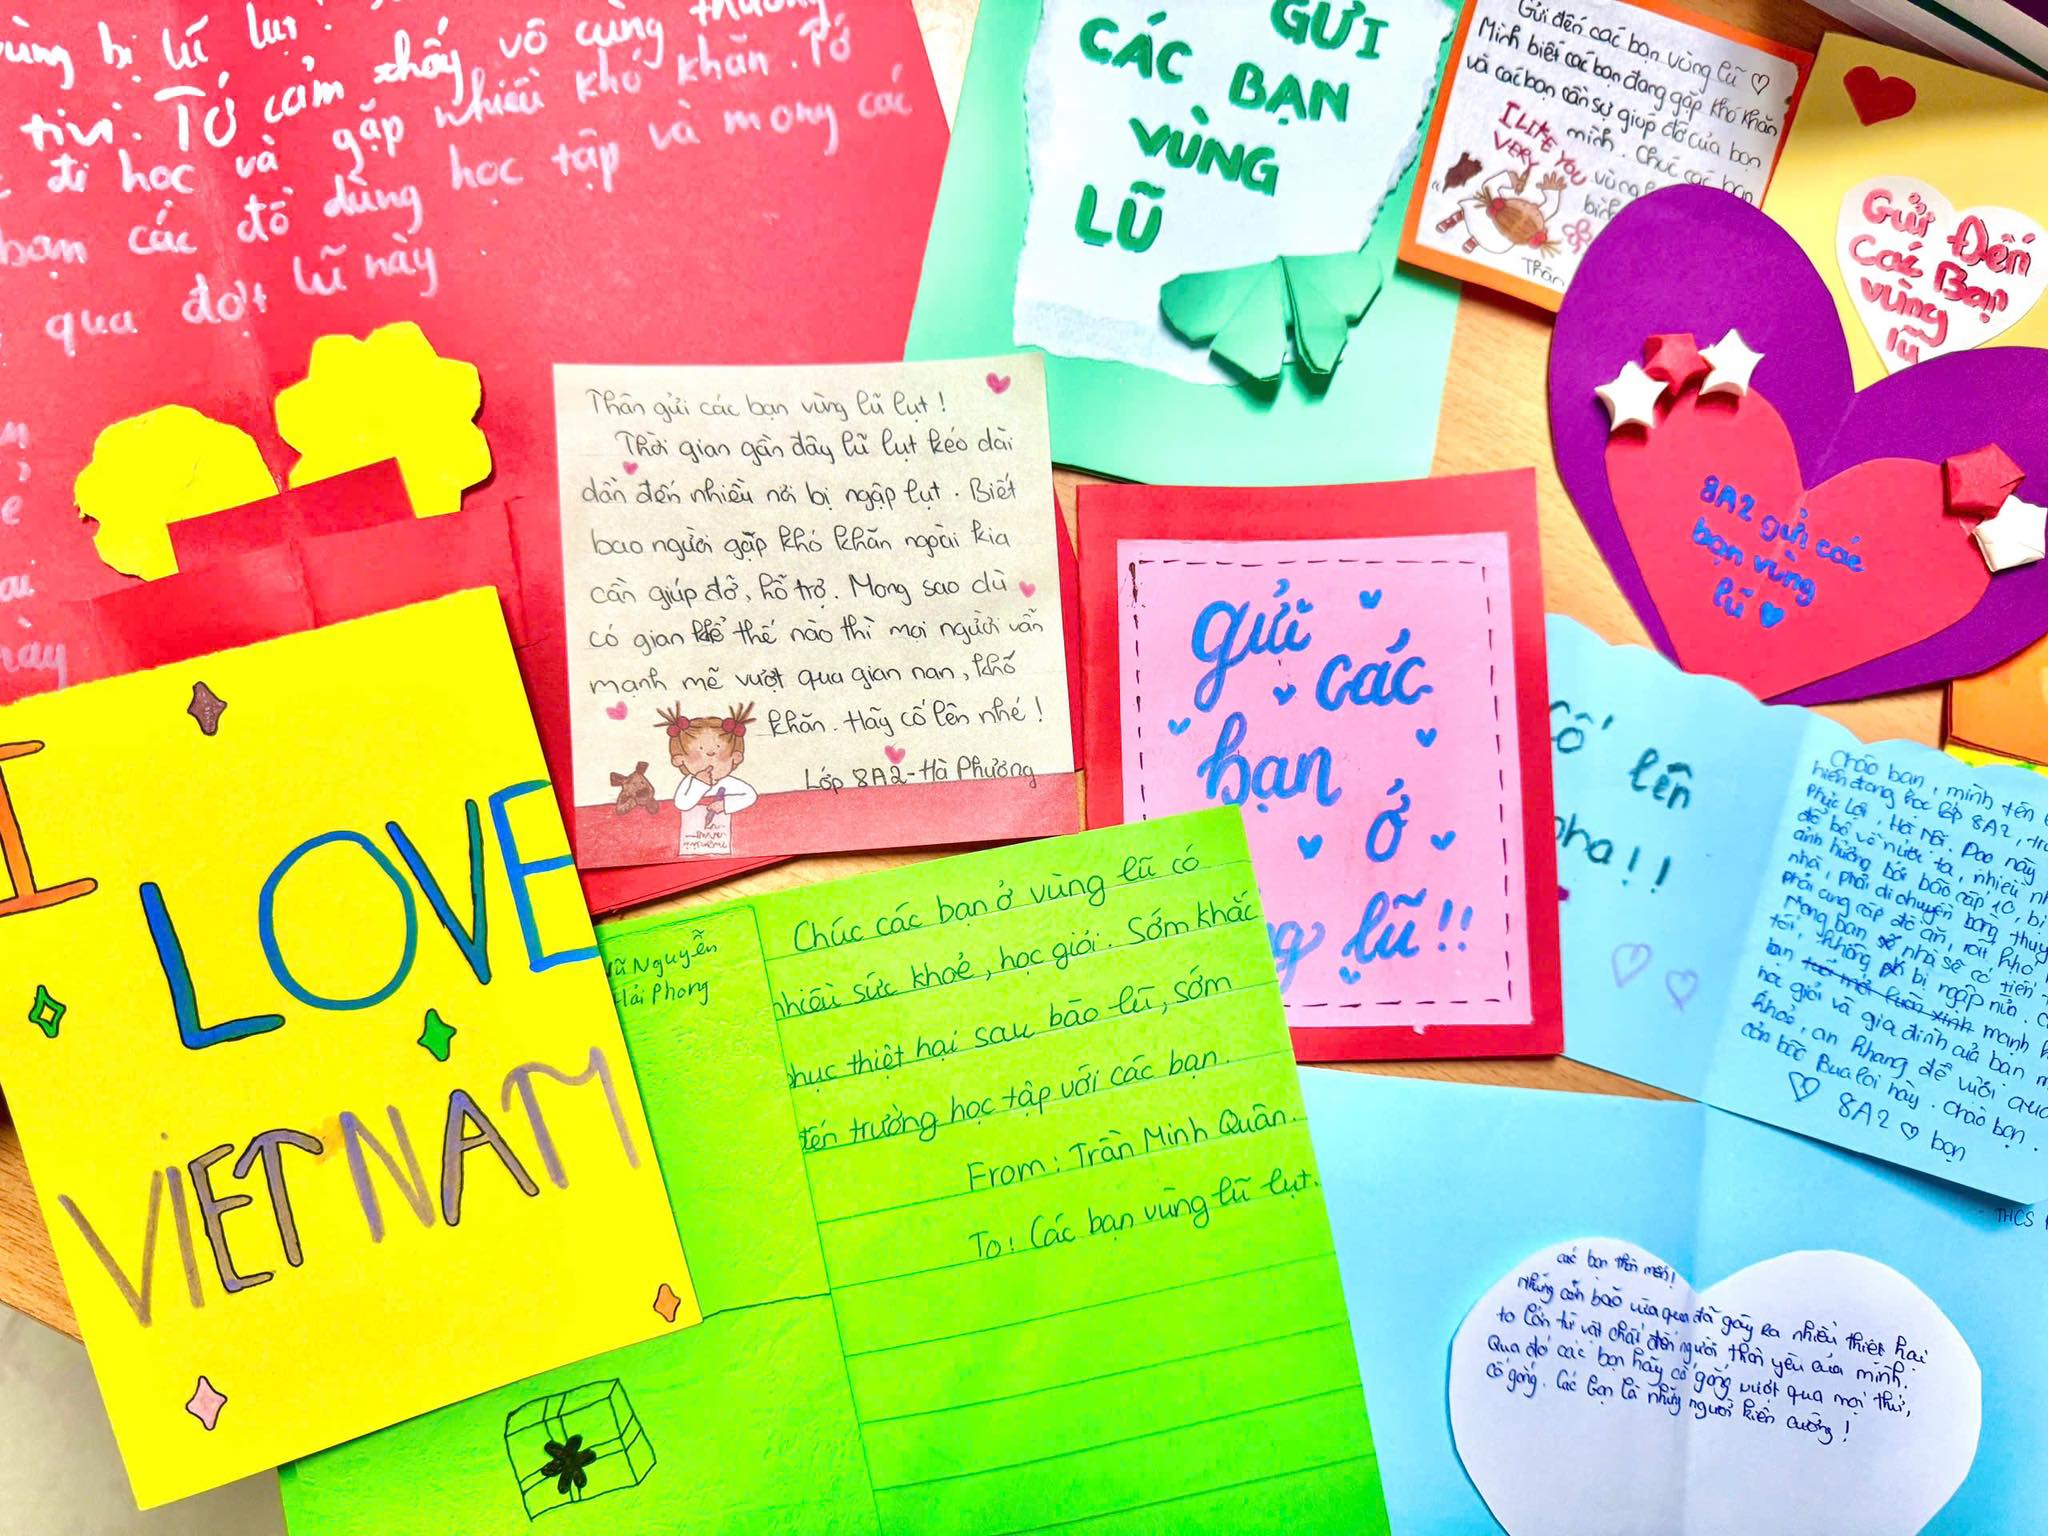 ùng bị lũ lụt
tivi. Tớ cảm thấy vô cùng thương
đi học và gặp nhiều khó khăn. Tớ
bạn các đồ dùng học tập và mong các
qua đợt lũ này
GỬI
CÁC BẠN
VÙNG
LŨ
Gửi đến các bạn vùng lũ ♡
Mình biết các bạn đang gặp khó khăn
và các bạn cần sự giúp đỡ của bạn
mình. Chúc các bạn
I LIKE YOU
VERY
vùng
bình
Thân
Gửi Đến
Các Bạn
vùng
lũ
8A2 gửi các
bạn vùng
lũ ♥
Thân gửi các bạn vùng lũ lụt!
Thời gian gần đây lũ lụt kéo dài
dẫn đến nhiều nơi bị ngập lụt. Biết
bao người gặp khó khăn ngoài kia
cần giúp đở, hỗ trợ. Mong sao dù
có gian khổ thế nào thì mọi người vẫn
mạnh mẽ vượt qua gian nan, khó
khăn. Hãy cố lên nhé!
Lớp 8A2-Hà Phương
gửi
các
bạn
ở
g lũ!!
Cố lên
nha!!
Chào bạn, mình tên
hiện đang học lớp 8A2, trư
Phúc Lợi, Hà Nội. Dạo này
đổ bộ về nước ta, nhiều nh
ảnh hưởng bởi bão cấp 10, bị
nhà, phải di chuyển bằng thuy
phải cung cấp đồ ăn, rất khó
Mong bạn nhà sẽ có tiến
tới, không bị ngập nữa. C
bạn mạnh k
học giỏi và gia đình của bạn m
khoẻ, an khang để vượt qua
cơn bão Bualoi này. Chào bạn.
♡ 8A2 ♡ bạn
THCS
I
LOVE
VIETNAM
Vũ Nguyễn
Hải Phong
Chúc các bạn ở vùng lũ có
nhiều sức khoẻ, học giỏi. Sớm khắc
phục thiệt hại sau bão lũ, sớm
đến trường học tập với các bạn.
From: Trần Minh Quân.
To: Các bạn vùng lũ lụt.
các bạn thân mến!
Những cơn bão vừa qua đã gây ra nhiều thiệt hại
to lớn từ vật chất đến người thân yêu của mình.
Qua đó các bạn hãy cố gắng vượt qua mọi thứ,
cố gắng. Các bạn là những người kiên cường!